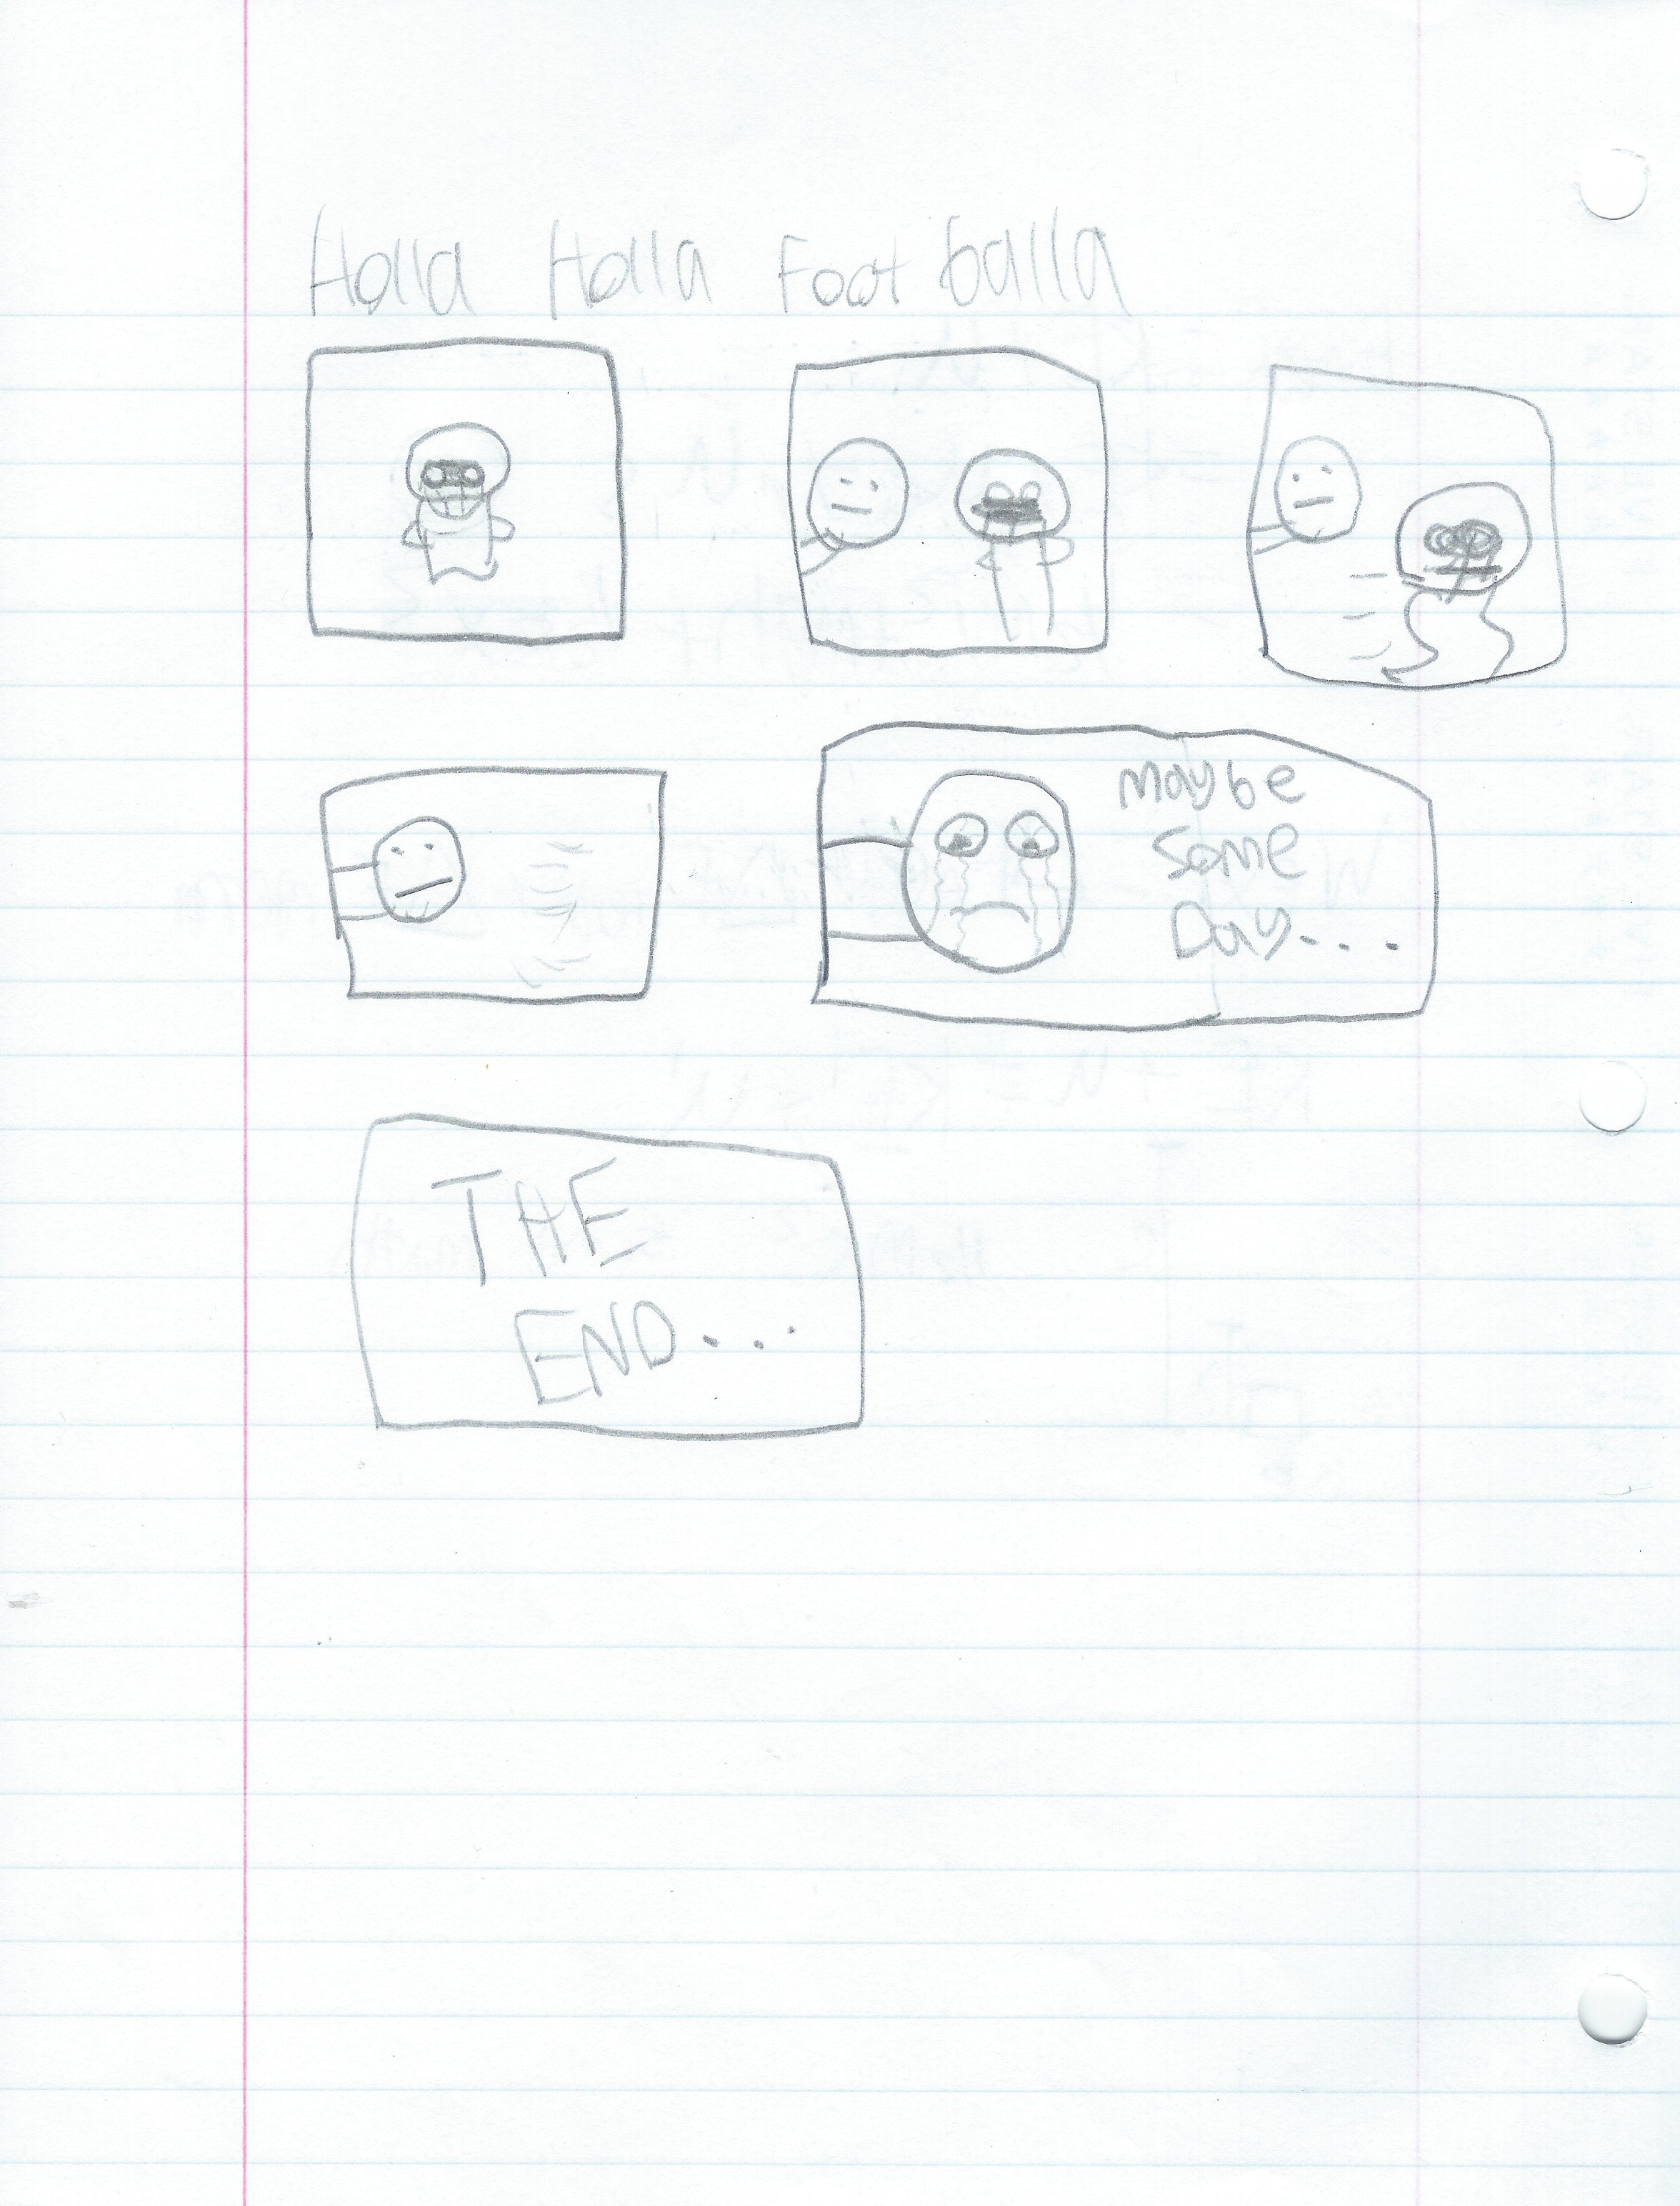 Holla Holla Foot balla
Maybe
Some
Day...
THE
END...